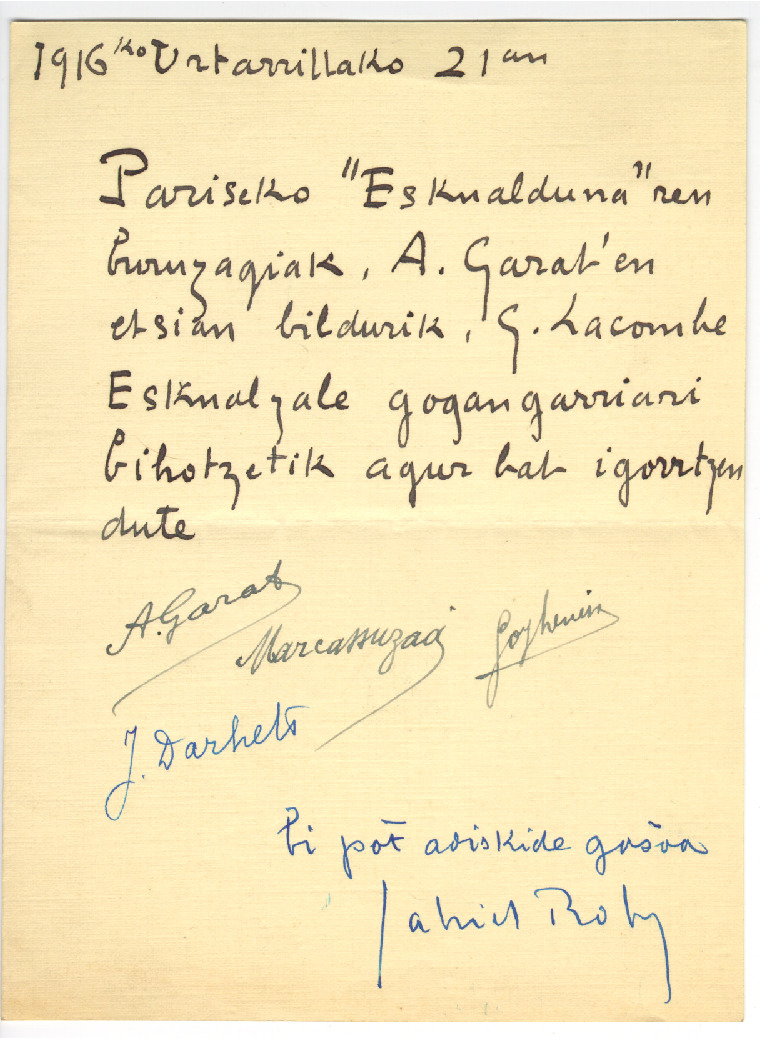 1916ko Urtarrillako 21an
Pariseko "Eskualduna"ren
buruzagiak, A. Garat'en
etsian bildurik, G. Lacombe
Eskualzale gogangarriari
bihotzetik agur bat igorrtzen
dute
A. Garat
Marcassuzaa Goyhenein
J. Darhets
bi pot̄ adiskide gošoa